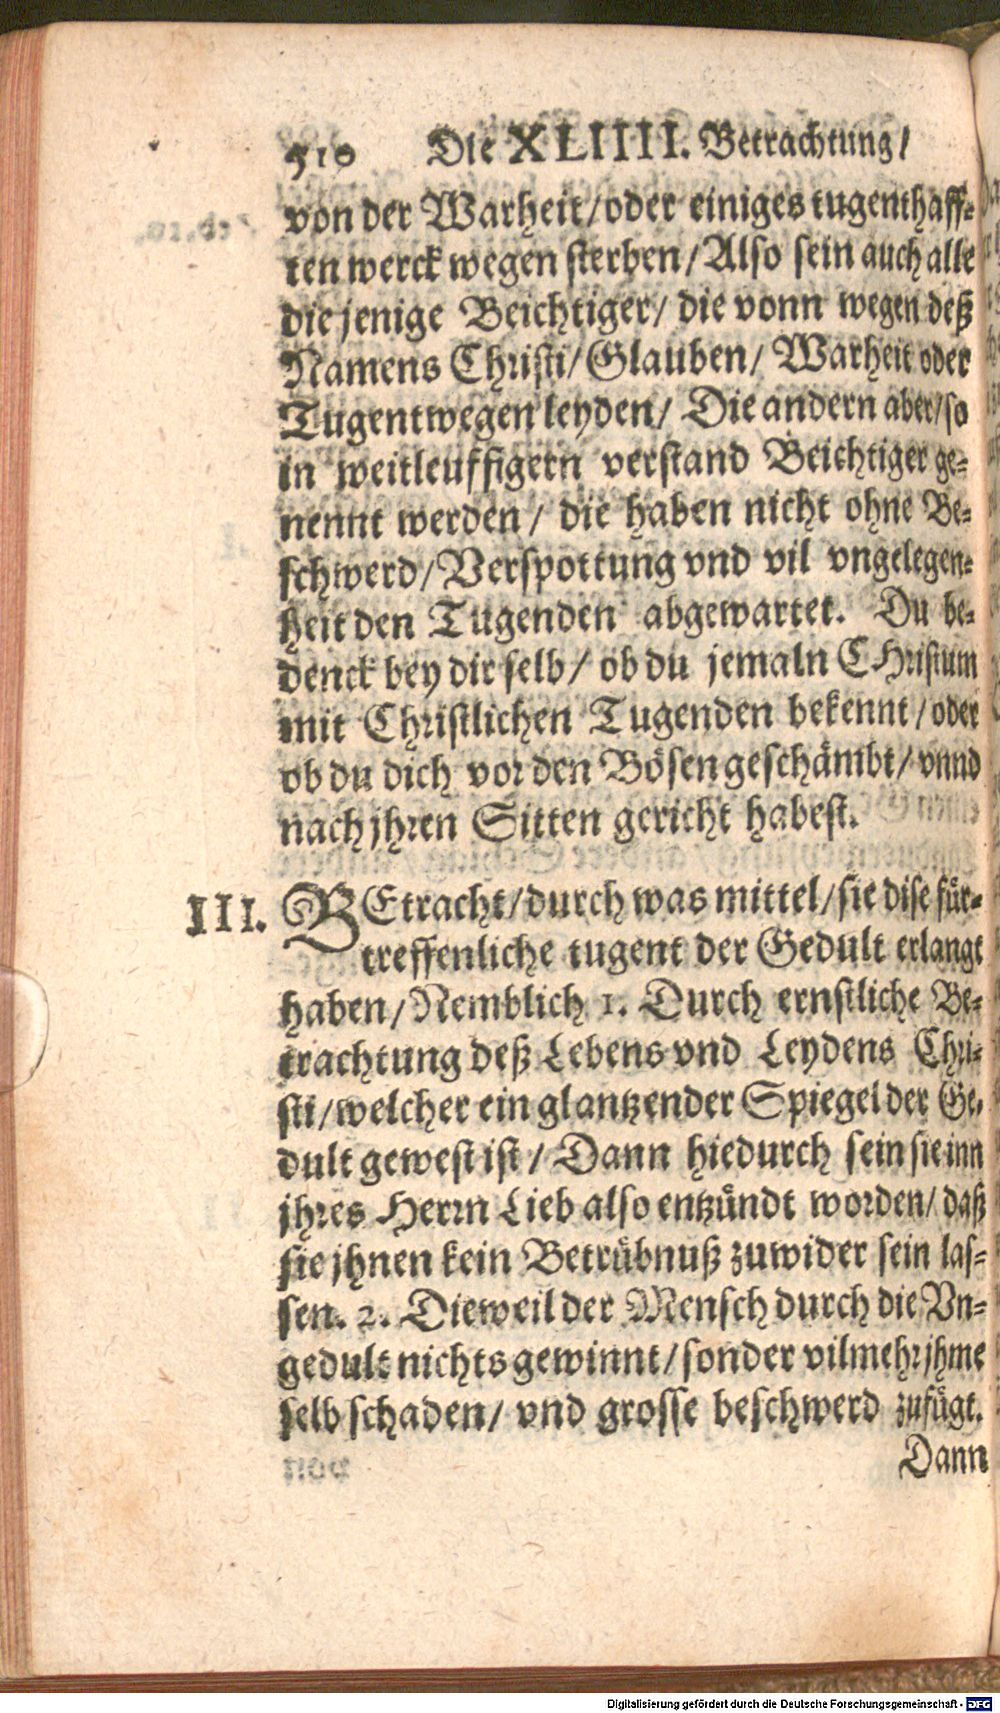 510 Die XLIIII. Betrachtung/
von der Warheit/oder einiges tugenthaff-
ten werck wegen sterben/Also sein auch alle
die jenige Beichtiger/ die vonn wegen deß
Namens Christi/Glauben/ Warheit oder
Tugent wegen leyden/ Die andern aber/so
in weitleuffigern verstand Beichtiger ge-
nennt werden/ die haben nicht ohne Be-
schwerd/Verspottung vnd vil vngelegen-
heit den Tugenden abgewartet. Du be-
denck bey dir selb/ ob du jemaln CHristum
mit Christlichen Tugenden bekennt/oder
ob du dich vor den Bösen geschämbt/vnnd
nach jhren Sitten gericht habest.
III. BEtracht/durch was mittel/sie dise für-
treffenliche tugent der Gedult erlangt
haben/Nemblich 1. Durch ernstliche Be-
trachtung deß Lebens vnd Leydens Chri-
sti/welcher ein glantzender Spiegel der Ge-
dult gewest ist/ Dann hiedurch sein sie inn
jhres Herrn Lieb also entzündt worden/ daß
sie jhnen kein Betrübnuß zuwider sein las-
sen. 2. Dieweil der Mensch durch die Vn-
gedult nichts gewinnt/sonder vilmehr jhme
selb schaden/ vnd grosse beschwerd zufügt.
Dann
Digitalisierung gefördert durch die Deutsche Forschungsgemeinschaft - DFG